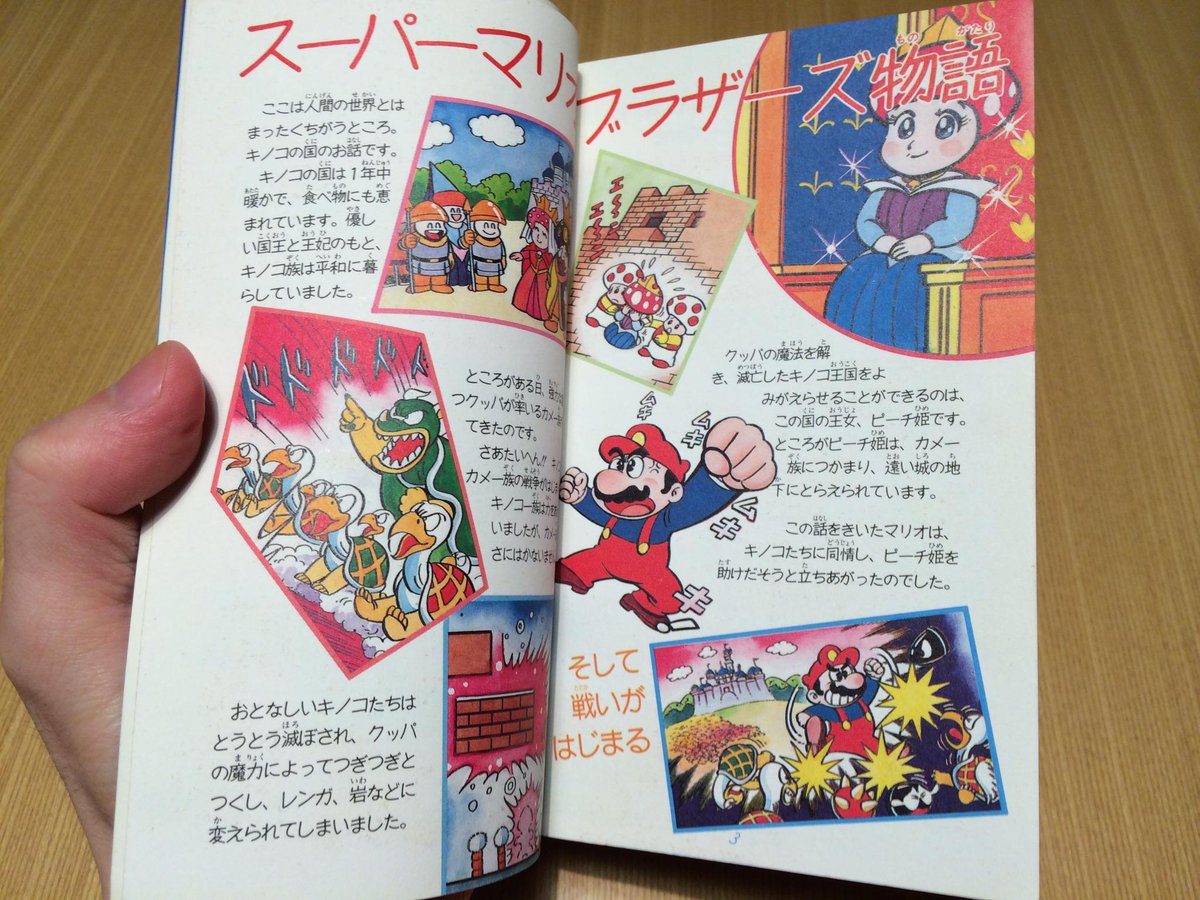 スーパーマリオブラザーズ物語
ここは人間の世界とは
まったくちがうところ。
キノコの国のお話です。
キノコの国は1年中
暖かで、食べ物にも恵
まれています。優し
い国王と王妃のもと、
キノコ族は平和に暮
らしていました。
ズズズズズ
ところがある日、強力な
つクッパが率いるカメー
てきたのです。
さあたいへん!! キノ
カメー族の戦争がはじま
キノコ一族は力を
いましたが、カメー
さにはかないませ
おとなしいキノコたちは
とうとう滅ぼされ、クッパ
の魔力によってつぎつぎと
つくし、レンガ、岩などに
変えられてしまいました。
エ〜ン
エ〜ン
クッパの魔法を解
き、滅亡したキノコ王国をよ
みがえらせることができるのは、
この国の王女、ピーチ姫です。
ところがピーチ姫は、カメー
族につかまり、遠い城の地
下にとらえられています。
ムキムキムキムキムキー!
この話をきいたマリオは、
キノコたちに同情し、ピーチ姫を
助けだそうと立ちあがったのでした。
そして
戦いが
はじまる
3